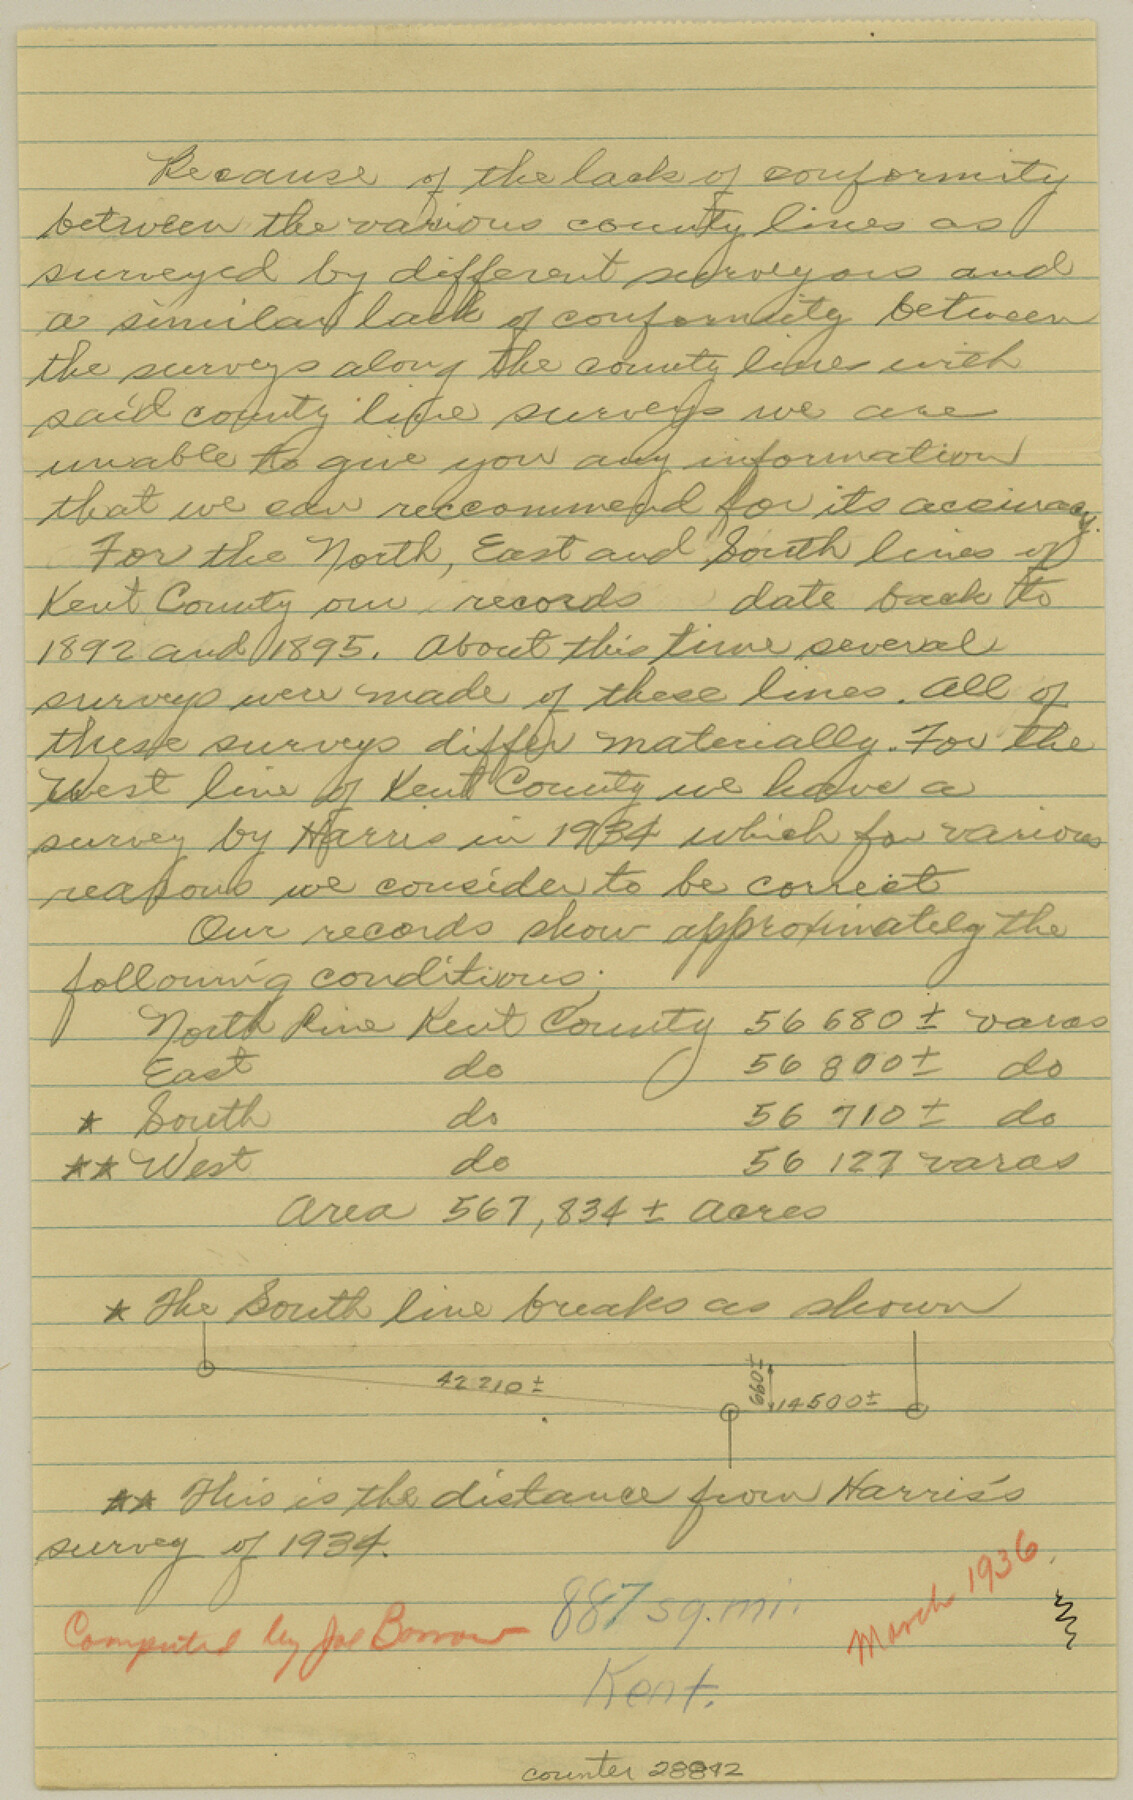 Because of the lack of conformity
between the various county lines as
surveyed by different surveyors and
a similar lack of conformity between
the surveys along the county lines with
said county line surveys we are
unable to give you any information
that we can reccommend for its accuracy.
For the North, East and South lines of
Kent County our records date back to
1892 and 1895. About this time several
surveys were made of these lines. All of
these surveys differ materially. For the
West line of Kent County we have a
survey by Harris in 1934 which for various
reasons we consider to be correct
Our records show approximately the
following conditions;
North Line Kent County 56 680 ± varas
East do 56 800 ± do
* South do 56 710 ± do
** West do 56 127 varas
Area 567,834 ± Acres
* The South line breaks as shown
42 210 ±
660 ±
14 500 ±
** This is the distance from Harris's
survey of 1934.
Computed by Joe
887 sq. mi.
March 1936
Kent.
counter 28842